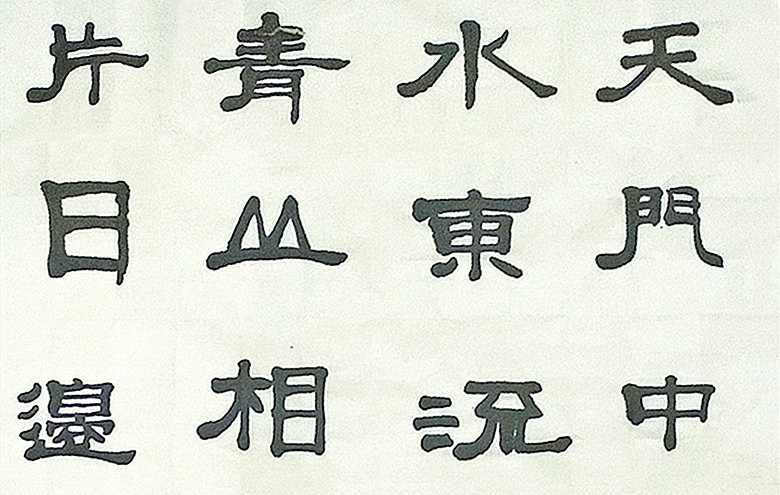 天門中
水東流
青山相
片日邊